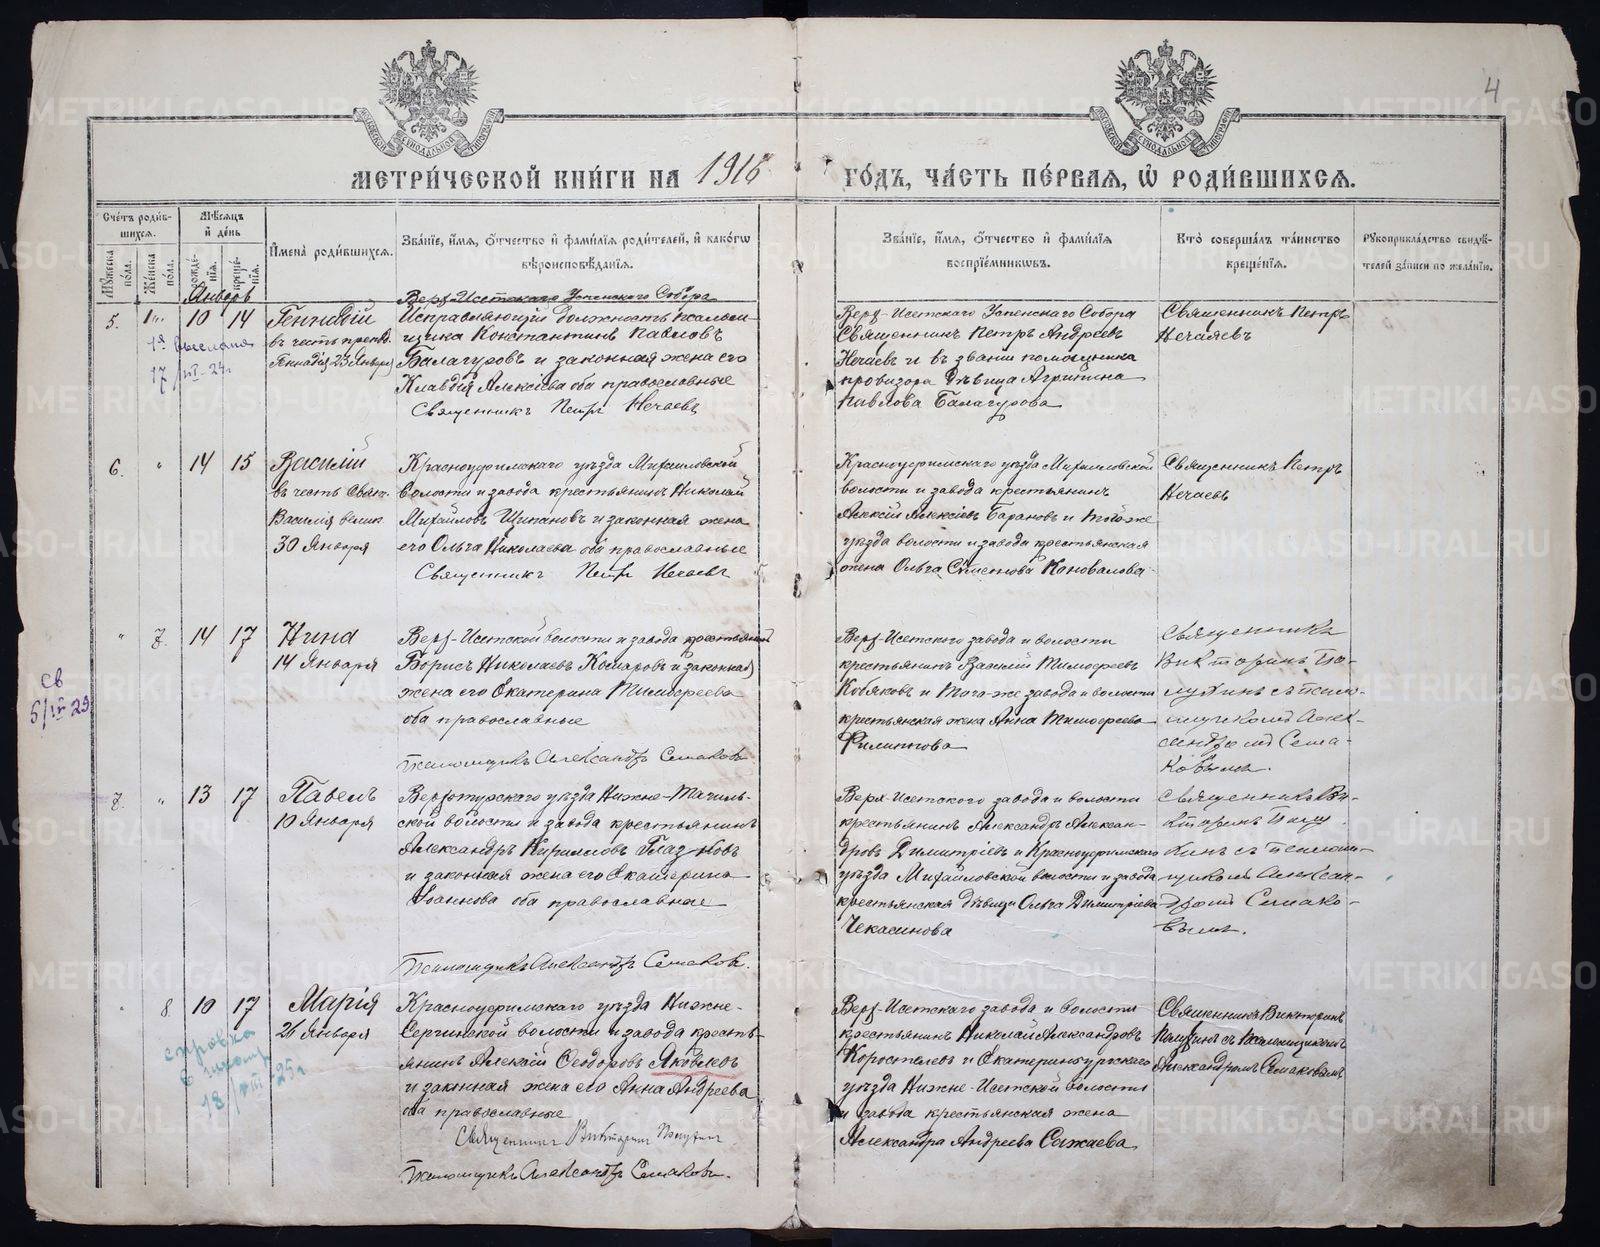 4
МЕТРИ́ЧЕСКОЙ КНИ́ГИ НА 1916 ГО́ДЪ, ЧА́СТЬ ПЕ́РВАЯ, Ѡ҆ РОДИ́ВШИХСЯ.
Сче́тъ роди́в-
шихся.
Му́жеска по́ла.
Же́нска по́ла.
Мѣ́сяцъ
и҆ де́нь
рожде́-
нїя.
креще́-
нїя.
И҆мена̀ роди́вшихся.
Зва́нїе, и҆́мя, ѻ҆́тчество и҆ фами́лїя роди́телей, и҆ како́гѡ
вѣроисповѣ́данїя.
Зва́нїе, и҆́мя, ѻ҆́тчество и҆ фами́лїя
воспрїе́мниковъ.
Кто̀ соверша́лъ та́инство
креще́нїя.
Рукоприкла́дство свидѣ́-
телей за́писи по жела́нїю.
Январь
5.
10 14
Геннадій
въ честь препод.
Геннадія 23 Января
1я
17/VII-24г
Верх-Исетскаго Успенскаго Собора
Исправляющій должность псалом-
щика Константинъ Павловъ
Балагуровъ и законная жена его
Клавдія Алексіева оба православные
Священникъ Петръ Нечаевъ
Верх-Исетскаго Успенскаго Собора
Священникъ Петръ Андреевъ
Нечаевъ и въ званіи помощника
провизора дѣвица Агрипина
Павлова Балагурова
Священникъ Петръ
Нечаевъ
6. " 14 15
Василій
въ честь Свят.
Василія велик.
30 Января
Красноуфимскаго уѣзда Михайловской
волости и завода крестьянинъ Николай
Михайловъ Щипановъ и законная жена
его Ольга Николаева оба православные
Священникъ Петръ Нечаевъ
Красноуфимскаго уѣзда Михайловской
волости и завода крестьянинъ
Алексій Алексіевъ Барановъ и того-же
уѣзда волости и завода крестьянская
жена Ольга Сѵмеонова Коновалова
Священникъ Петръ
Нечаевъ
" 7. 14 17
Нина
14 Января
СВ
5/IV 29
Верх-Исетской волости и завода крестьянинъ
Борисъ Николаевъ Комаровъ и законная
жена его Екатерина Тимоѳеева
оба православные
Псаломщикъ Александръ Семаковъ
Верх-Исетскаго завода и волости
крестьянинъ Василій Тимоѳеевъ
Кобяковъ и того-же завода и волости
крестьянская жена Анна Тимоѳеева
Филиппова
Священникъ
Викторинъ По-
лухинъ съ псало-
мщикомъ Алек-
сандромъ Сема-
ковымъ.
7. " 13 17
Павелъ
10 Января
Верхотурскаго уѣзда Нижне-Тагиль-
ской волости и завода крестьянинъ
Александръ Кирилловъ Глазуновъ
и законная жена его Екатерина
Іоаннова оба православные
Псаломщикъ Александръ Семаковъ.
Верх-Исетскаго завода и волости
крестьянинъ Александръ Алексан-
дровъ Димитріевъ и Красноуфимскаго
уѣзда Михайловской волости и завода
крестьянская дѣвица Ольга Димитріева
Чекасинова
Священникъ Ви-
кторинъ Полу-
хинъ съ псалом-
щикомъ Алексан-
дромъ Семако-
вымъ.
" 8. 10 17
Марія
26 Января
справка
18/VIII 25г
Красноуфимскаго уѣзда Нижне-
Сергинской волости и завода кресть-
янинъ Алексій Ѳеодоровъ Яковлевъ
и законная жена его Анна Андреева
оба православные
Священникъ Викторинъ Полухинъ
Псаломщикъ Александръ Семаковъ.
Верх-Исетскаго завода и волости
крестьянинъ Николай Александровъ
Коростелевъ и Екатеринбургскаго
уѣзда Нижне-Исетской волости
и завода крестьянская жена
Александра Андреева Сажаева
Священникъ Викторинъ
Полухинъ съ псаломщикомъ
Александромъ Семаковымъ
METRIKI.GASO-URAL.RU